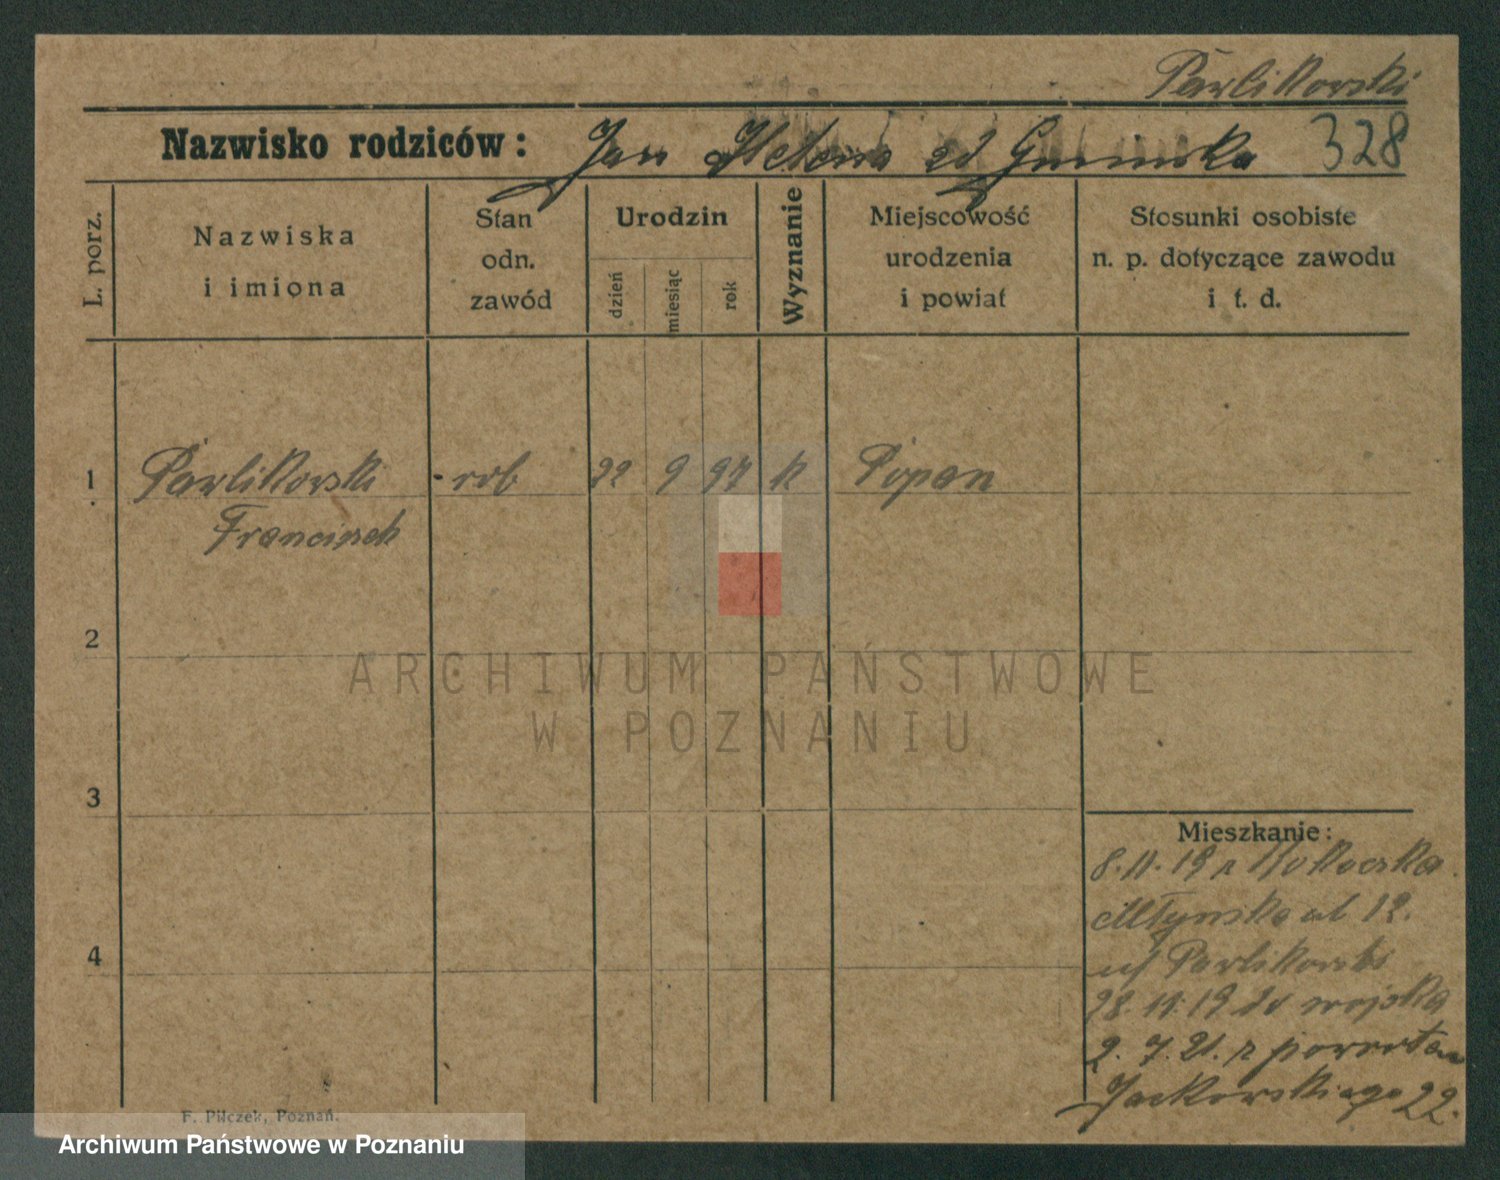 Pawlikowski
Nazwisko rodziców: Jan Helena zd 328
L. porz.
Nazwiska
i imiona
Stan
odn.
zawód
Urodzin
dzień
miesiąc
rok
Wyznanie
Miejscowość
urodzenia
i powiat
Stosunki osobiste
n. p. dotyczące zawodu
i t. d.
1 Pawlikowski rob 22 9 97 k
Franciszek
2
3
4
ARCHIWUM PAŃSTWOWE
W POZNANIU
Mieszkanie:
8.11.19 z
Młyńska 12.
u/ Pawlikowski
28.11.19 do wojska
2.7.21. z powrotem
Jackowskiego 22.
F. Pilczek, Poznań.
Archiwum Państwowe w Poznaniu